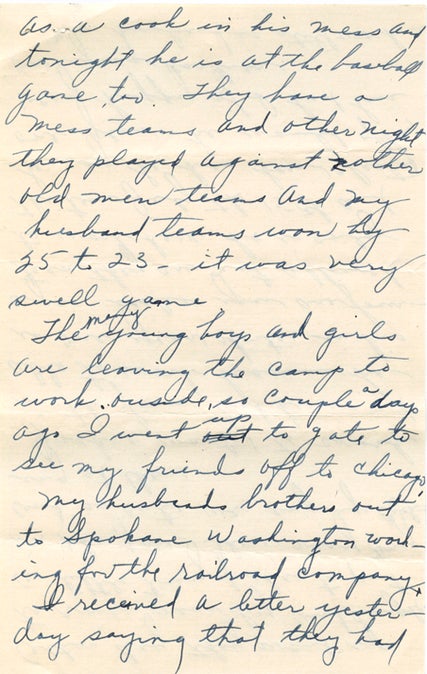 as a cook in his mess and
tonight he is at the baseball
game, too. They have a
mess teams and other night
they played against other
old men teams and my
husband teams won by
25 to 23 - it was very
swell game
The many young boys and girls
are leaving the camp to
work ouside, so couple a days
ago I went up out to gate to
see my friends off to chicago.
My husbands brothers out
to Spokane Washington work-
ing for the railroad company.
I received a letter yester-
day saying that they had